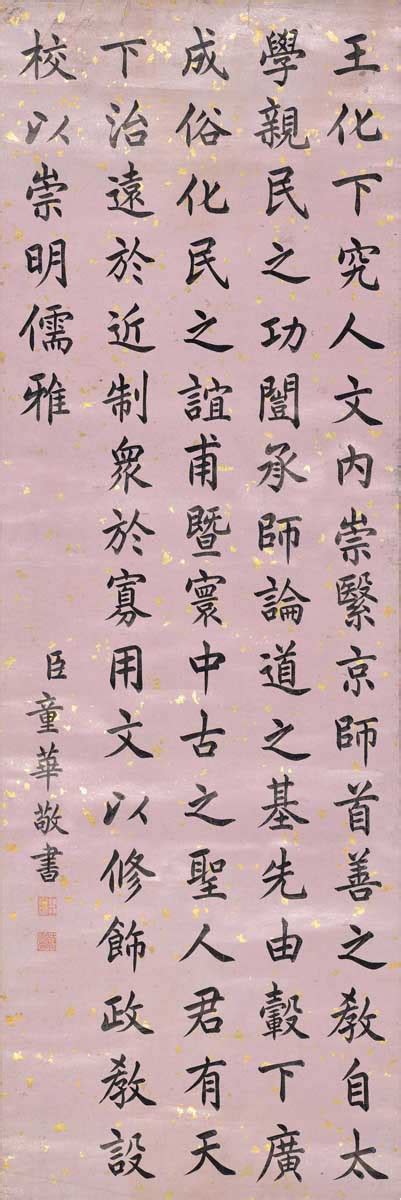 王化下究人文内崇繄京師首善之教自太
學親民之功闓承師論道之基先由轂下廣
成俗化民之誼甫暨寰中古之聖人君有天
下治遠於近制衆於寡用文以修飾政教設
校以崇明儒雅
臣童華敬書